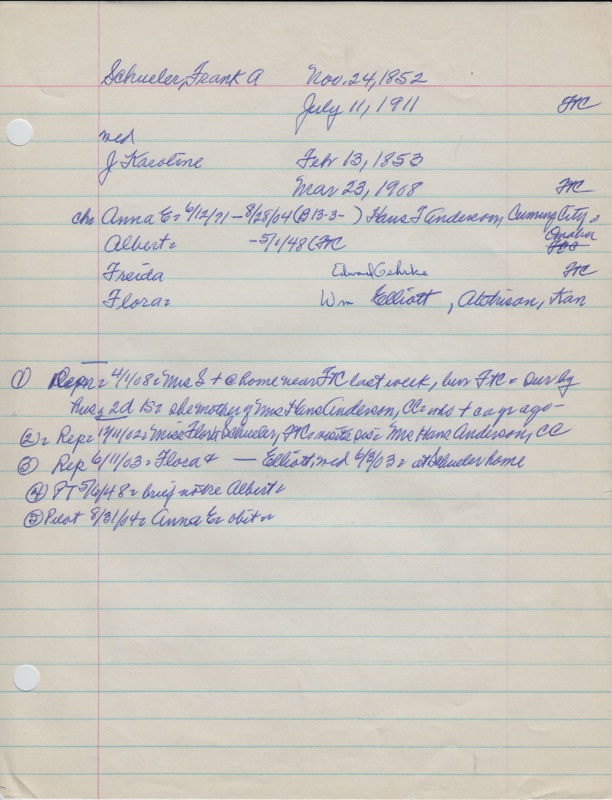 Schueler, Frank A Nov. 24, 1852
July 11, 1911 FTC
med
J Karoline Feb 13, 1853
Mar 23, 1908 FTC
chn Anna E = 6/12/71 - 8/28/04 (B 13-3- ) Hans T Anderson, Cuming City =
Albert = -5/1/48 (FTC Omaha
Freida Edward Gehrke FTC
Flora = Wm Elliott, Atchison, Kan
① Rep = 4/1/08 = Mrs S + @ home near FTC last week, bur FTC = Sur by
hus, 2d 1s = she mother of Mrs Hans Anderson, CC = who + ca yr ago -
② = Rep = 12/11/02 = Miss Flora Schueler, FTC = visits sis = Mrs Hans Anderson, CC
③ Rep 6/11/03 = Flora & — Elliott, med 6/3/03 = at Schueler home
④ PT 5/6/48 = brief notice Albert =
⑤ Pilot 8/31/04 = Anna E = obit =